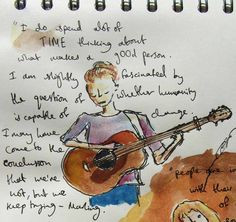 "I do spend alot of
TIME thinking about
what makes a good person.
I am slightly fascinated by
the question of whether humanity
is capable of change.
I may have
come to the
conclusion
that we're
not, but we
keep trying - Marling.
people are in
with their
of